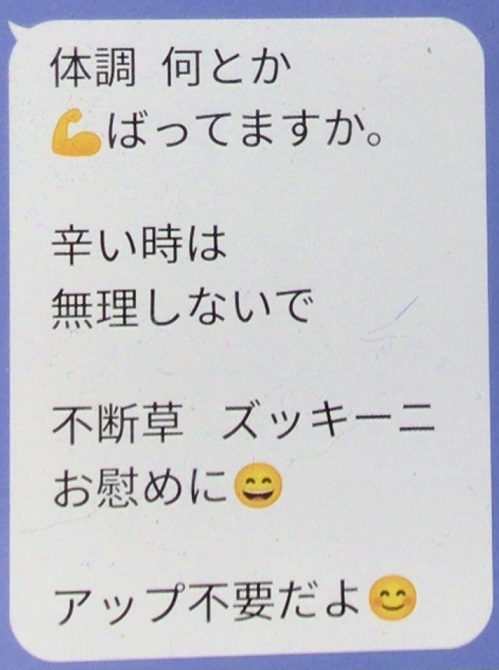 体調 何とか
💪ばってますか。
辛い時は
無理しないで
不断草 ズッキーニ
お慰めに😄
アップ不要だよ😊